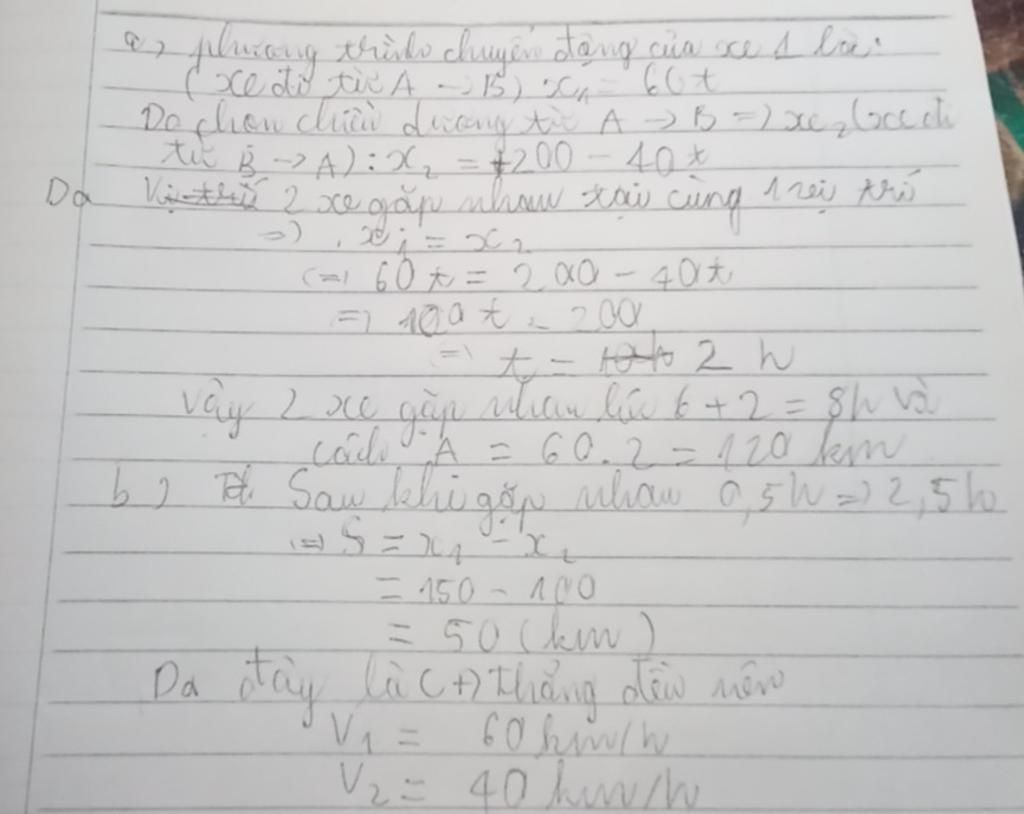 a, phương trình chuyển động của xe 1 là:
(xe đi từ A → B) x₁ = 60t
Do chọn chiều dương từ A → B => xe₂ (xe đi
từ B → A): x₂ = +200 - 40t
Do 2 xe gặp nhau tại cùng 1 vị trí
=> x₁ = x₂
(=) 60t = 200 - 40t
=> 100t = 200
=> t = 2 h
Vậy 2 xe gặp nhau lúc 6 + 2 = 8h và
cách A = 60.2 = 120 km
b) Sau khi gặp nhau 0,5h => 2,5h
(=) S = x₁ - x₂
= 150 - 100
= 50 (km)
Do đây là c(+) thẳng đều nên
V₁ = 60 km/h
V₂ = 40 km/h